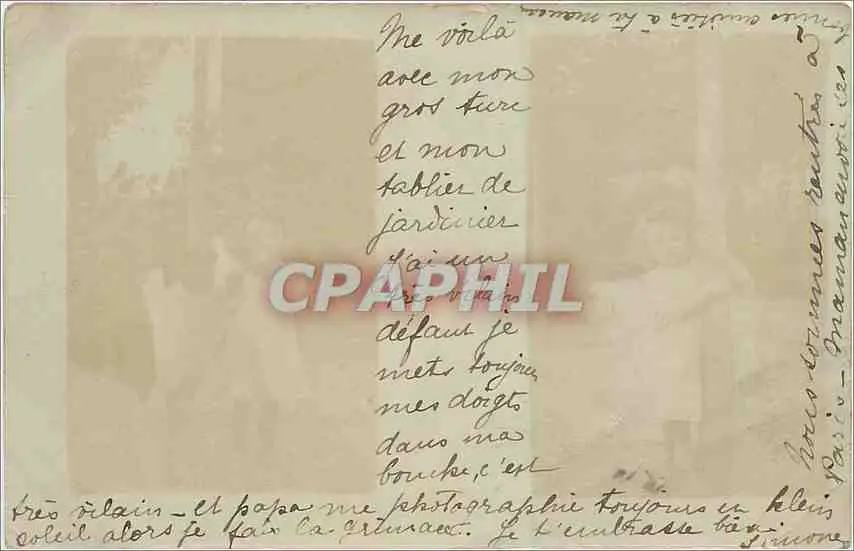 Me voilà
avec mon
gros turc
et mon
tablier de
jardinier
j'ai un
très vilain
défaut je
mets toujours
mes doigts
dans ma
bouche, c'est
très vilain - et papa me photographie toujours en plein
soleil alors je fais la grimace. Je t'embrasse bien
Simone
Nous sommes rentrés à
Paris - Maman envoie ses
bonnes amitiés à ta maman
CPAPHIL